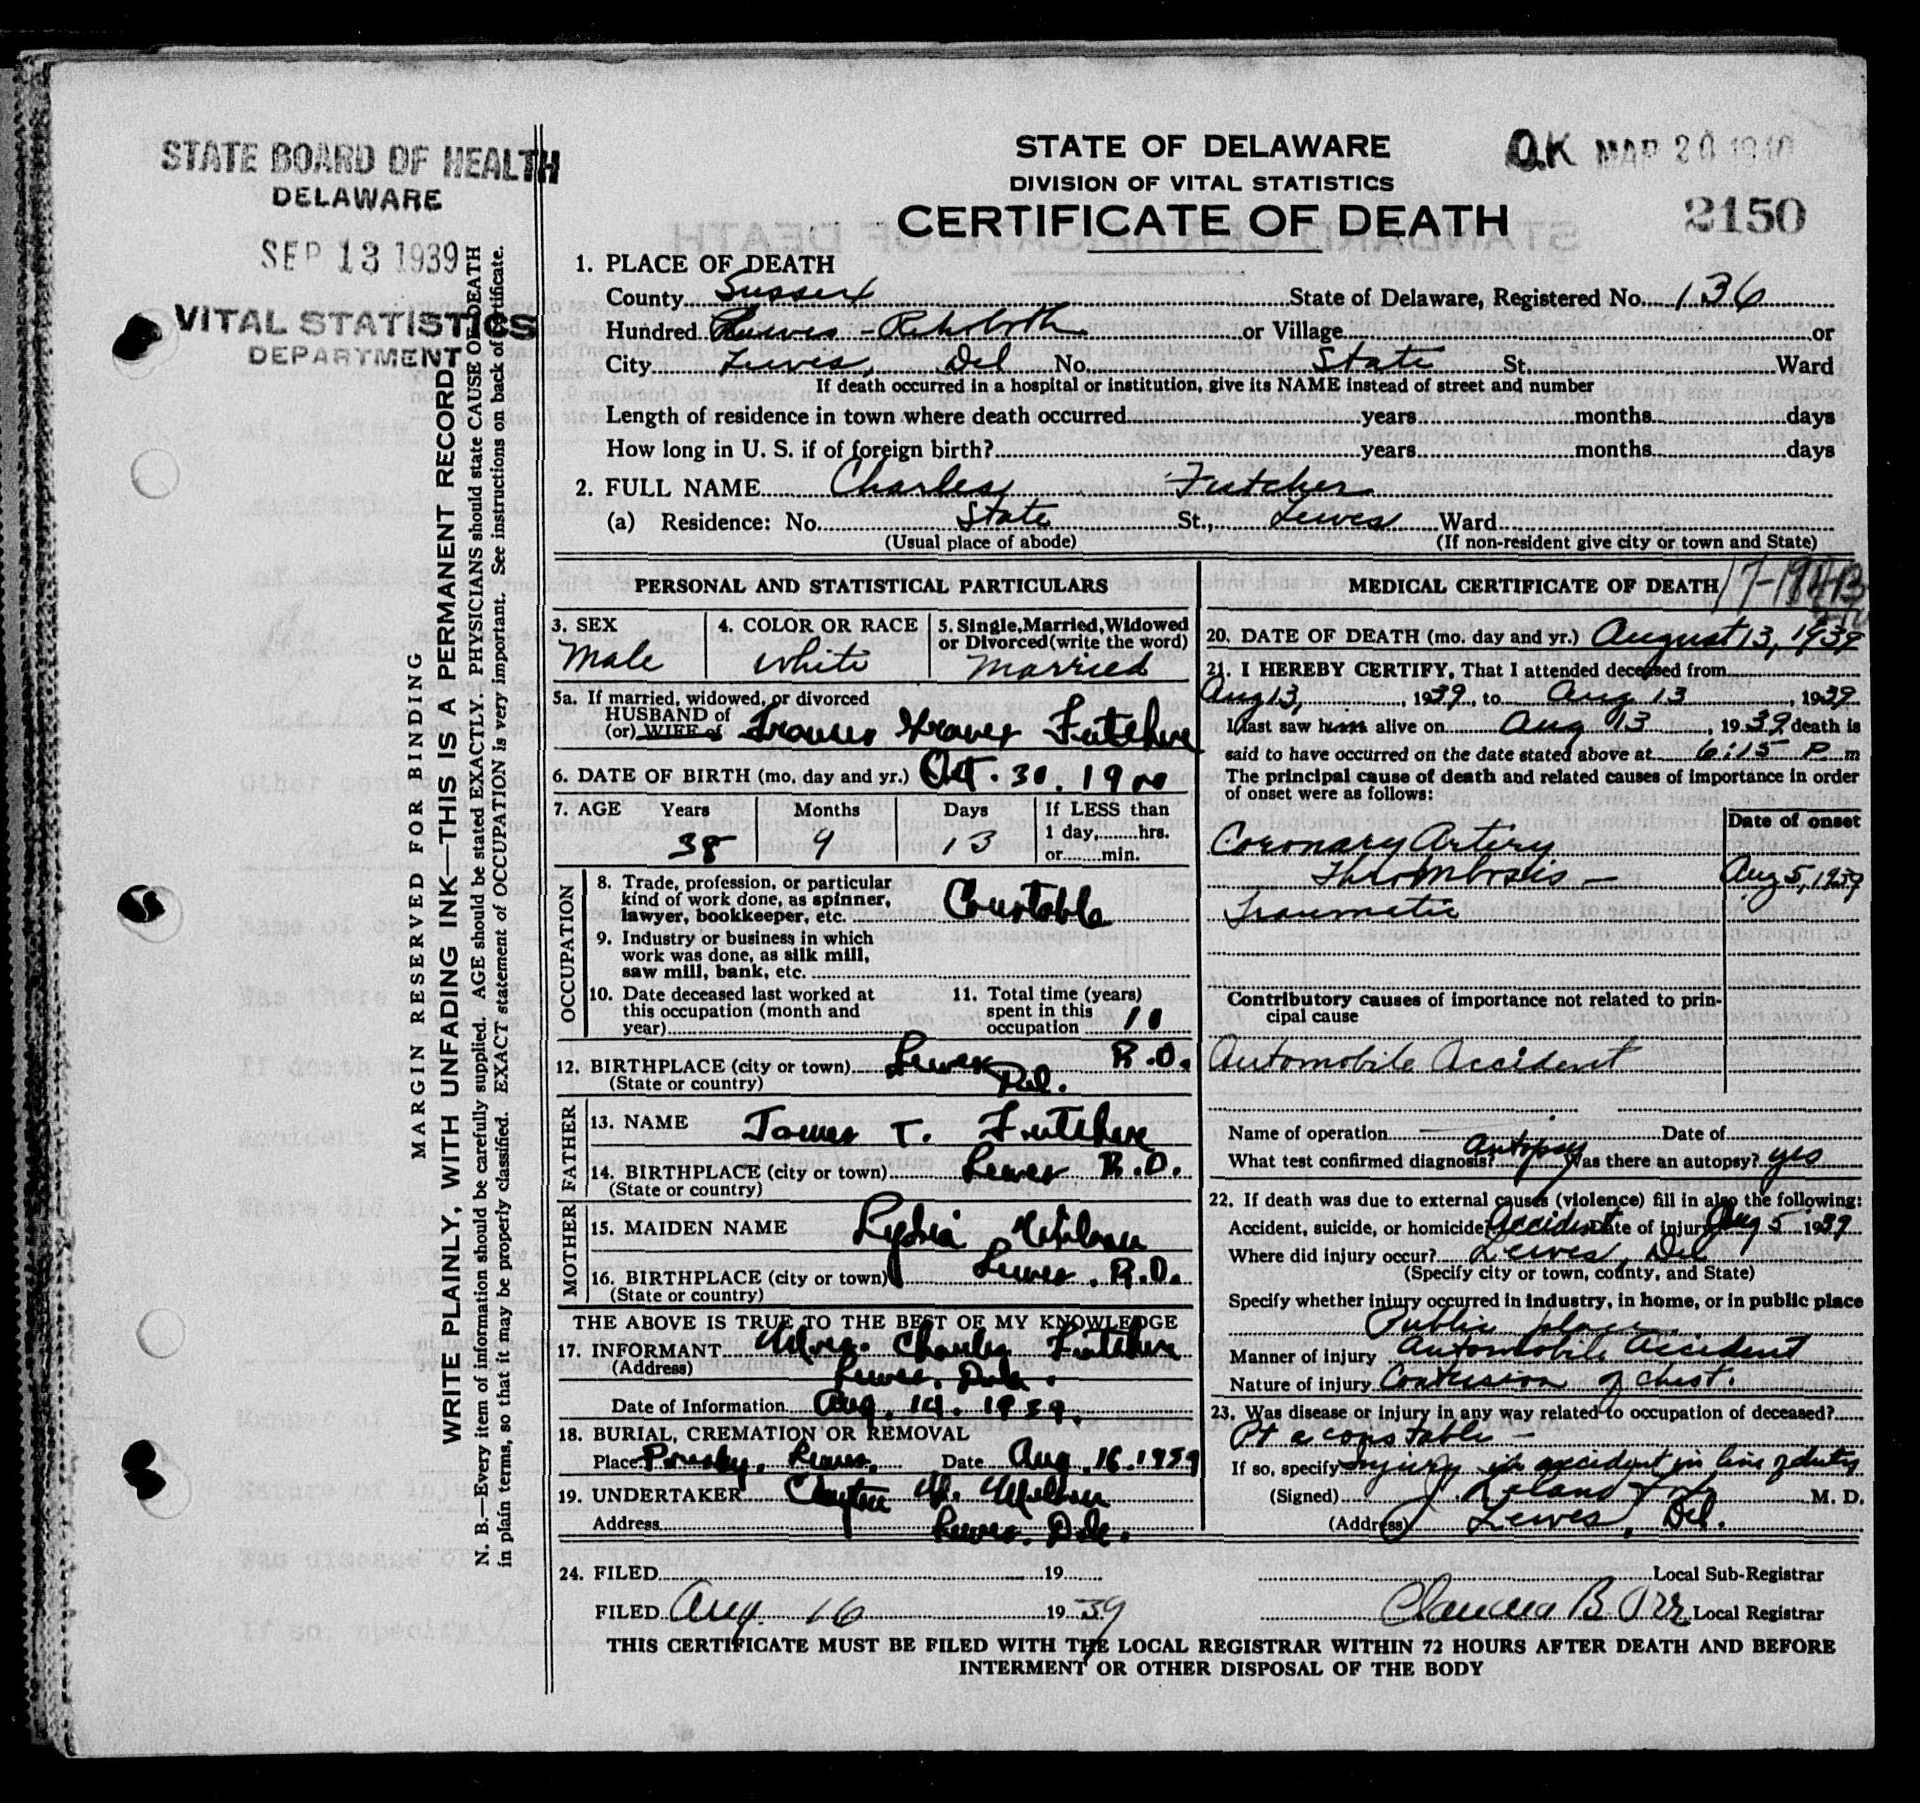 STATE BOARD OF HEALTH
DELAWARE
SEP 13 1939
VITAL STATISTICS
DEPARTMENT
MARGIN RESERVED FOR BINDING
WRITE PLAINLY, WITH UNFADING INK—THIS IS A PERMANENT RECORD
N. B.—Every item of information should be carefully supplied. AGE should be stated EXACTLY. PHYSICIANS should state CAUSE OF DEATH
in plain terms, so that it may be properly classified. EXACT statement of OCCUPATION is very important. See instructions on back of certificate.
STATE OF DELAWARE
DIVISION OF VITAL STATISTICS
CERTIFICATE OF DEATH
O.K MAR 20 1940
2150
1. PLACE OF DEATH
County Sussex State of Delaware, Registered No. 136
Hundred Lewes - Rehoboth or Village or
City Lewis, Del No. State St. Ward
If death occurred in a hospital or institution, give its NAME instead of street and number
Length of residence in town where death occurred years months days
How long in U. S. if of foreign birth? years months days
2. FULL NAME Charles Futcher
(a) Residence: No. State St., Lewes Ward
(Usual place of abode) (If non-resident give city or town and State)
PERSONAL AND STATISTICAL PARTICULARS
3. SEX 4. COLOR OR RACE 5. Single, Married, Widowed
or Divorced (write the word)
Male White Married
5a. If married, widowed, or divorced
HUSBAND of
(or) WIFE of Frances Graves Futcher
6. DATE OF BIRTH (mo. day and yr.) Oct. 31. 1900
7. AGE Years Months Days If LESS than
1 day, hrs.
or min.
38 9 13
OCCUPATION
8. Trade, profession, or particular
kind of work done, as spinner,
lawyer, bookkeeper, etc. Constable
9. Industry or business in which
work was done, as silk mill,
saw mill, bank, etc.
10. Date deceased last worked at
this occupation (month and
year)
11. Total time (years)
spent in this
occupation 10
12. BIRTHPLACE (city or town) Lewes R.D.
(State or country) Del.
FATHER
13. NAME James T. Futcher
14. BIRTHPLACE (city or town) Lewes R.D.
(State or country)
MOTHER
15. MAIDEN NAME Lydia
16. BIRTHPLACE (city or town) Lewes. R.D.
(State or country)
THE ABOVE IS TRUE TO THE BEST OF MY KNOWLEDGE
17. INFORMANT Mrs. Charles Futcher
(Address) Lewes. Del.
Date of Information Aug. 14. 1939.
18. BURIAL, CREMATION OR REMOVAL
Place Presby. Lewes. Date Aug. 16. 1939
19. UNDERTAKER Clayton
Address Lewes. Del.
MEDICAL CERTIFICATE OF DEATH
20. DATE OF DEATH (mo. day and yr.) August 13, 1939
21. I HEREBY CERTIFY, That I attended deceased from
Aug 13, 1939, to Aug 13, 1939
I last saw him alive on Aug 13, 1939 death is
said to have occurred on the date stated above at 6:15 P. m
The principal cause of death and related causes of importance in order
of onset were as follows:
Date of onset
Coronary Artery
Thrombosis — Aug 5, 1939
Traumatic
Contributory causes of importance not related to prin-
cipal cause
Automobile Accident
Name of operation Date of
What test confirmed diagnosis? Autopsy Was there an autopsy? yes
22. If death was due to external causes (violence) fill in also the following:
Accident, suicide, or homicide? Accident Date of injury Aug 5 1939
Where did injury occur? Lewes, Del
(Specify city or town, county, and State)
Specify whether injury occurred in industry, in home, or in public place
Public place
Manner of injury Automobile Accident
Nature of injury Contusion of chest.
23. Was disease or injury in any way related to occupation of deceased?
Pt a constable —
If so, specify Injury in accident in line of duty
(Signed) J. Leland Fox M. D.
(Address) Lewes, Del.
24. FILED 19 Local Sub-Registrar
FILED Aug. 16 1939 B Orr Local Registrar
THIS CERTIFICATE MUST BE FILED WITH THE LOCAL REGISTRAR WITHIN 72 HOURS AFTER DEATH AND BEFORE
INTERMENT OR OTHER DISPOSAL OF THE BODY